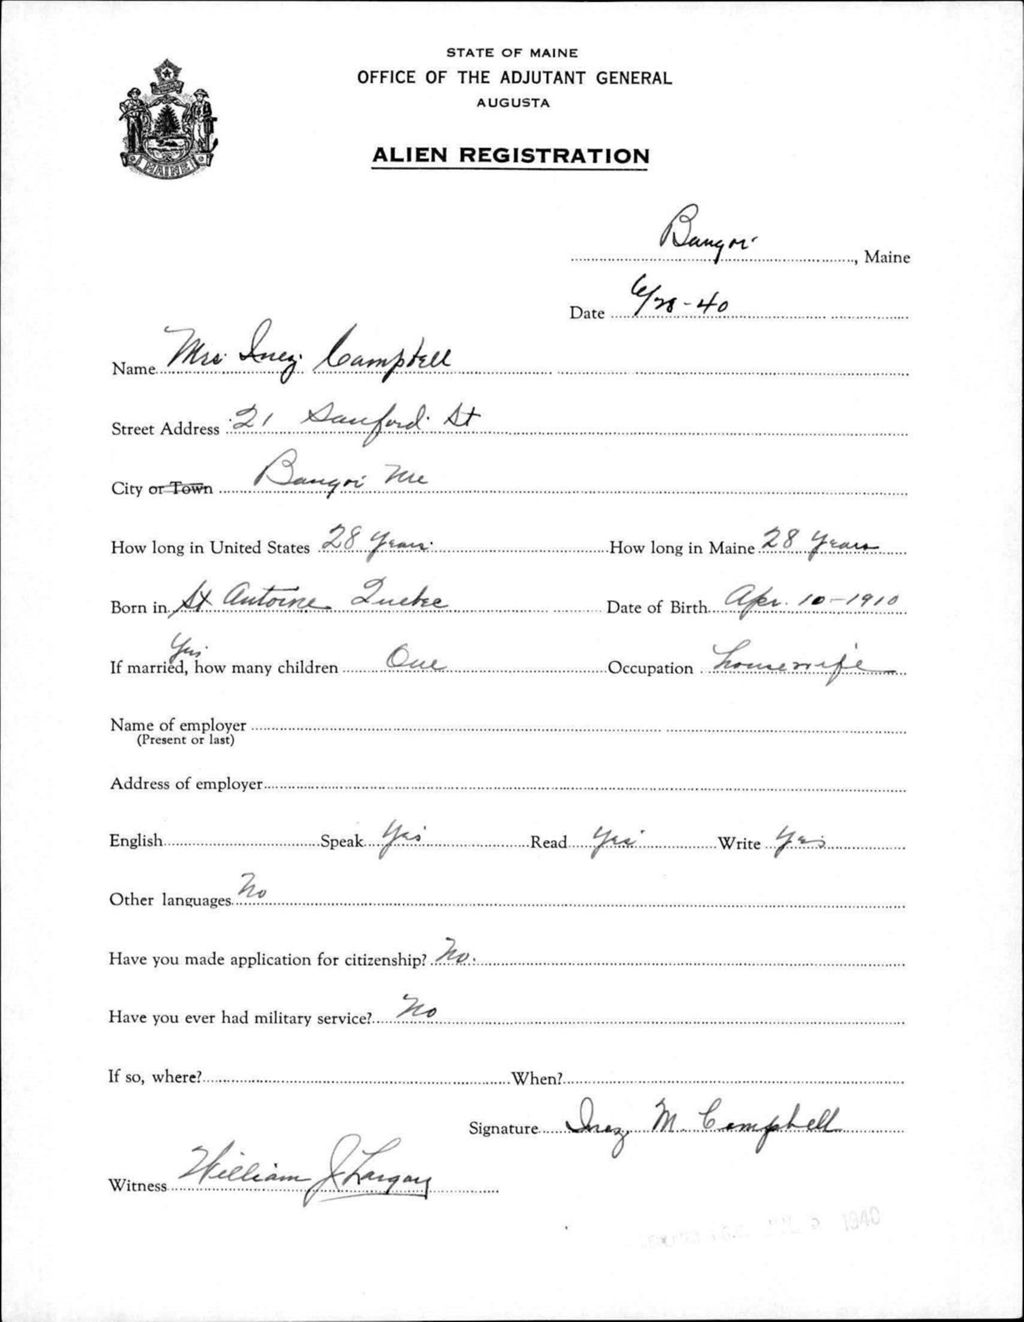 STATE OF MAINE
OFFICE OF THE ADJUTANT GENERAL
AUGUSTA
MAINE
ALIEN REGISTRATION
Bangor, Maine
Date 6/28-40
Name Mrs. Inez Campbell
Street Address 21 Sanford St
City or Town Bangor Me
How long in United States 28 years How long in Maine 28 years
Born in St Antoine Quebec Date of Birth Apr. 10-1910
Yes
If married, how many children One Occupation housewife
Name of employer
(Present or last)
Address of employer
English Speak Yes Read Yes Write Yes
Other languages No
Have you made application for citizenship? No.
Have you ever had military service? No
If so, where? When?
Signature Inez M. Campbell
Witness William J.
1940